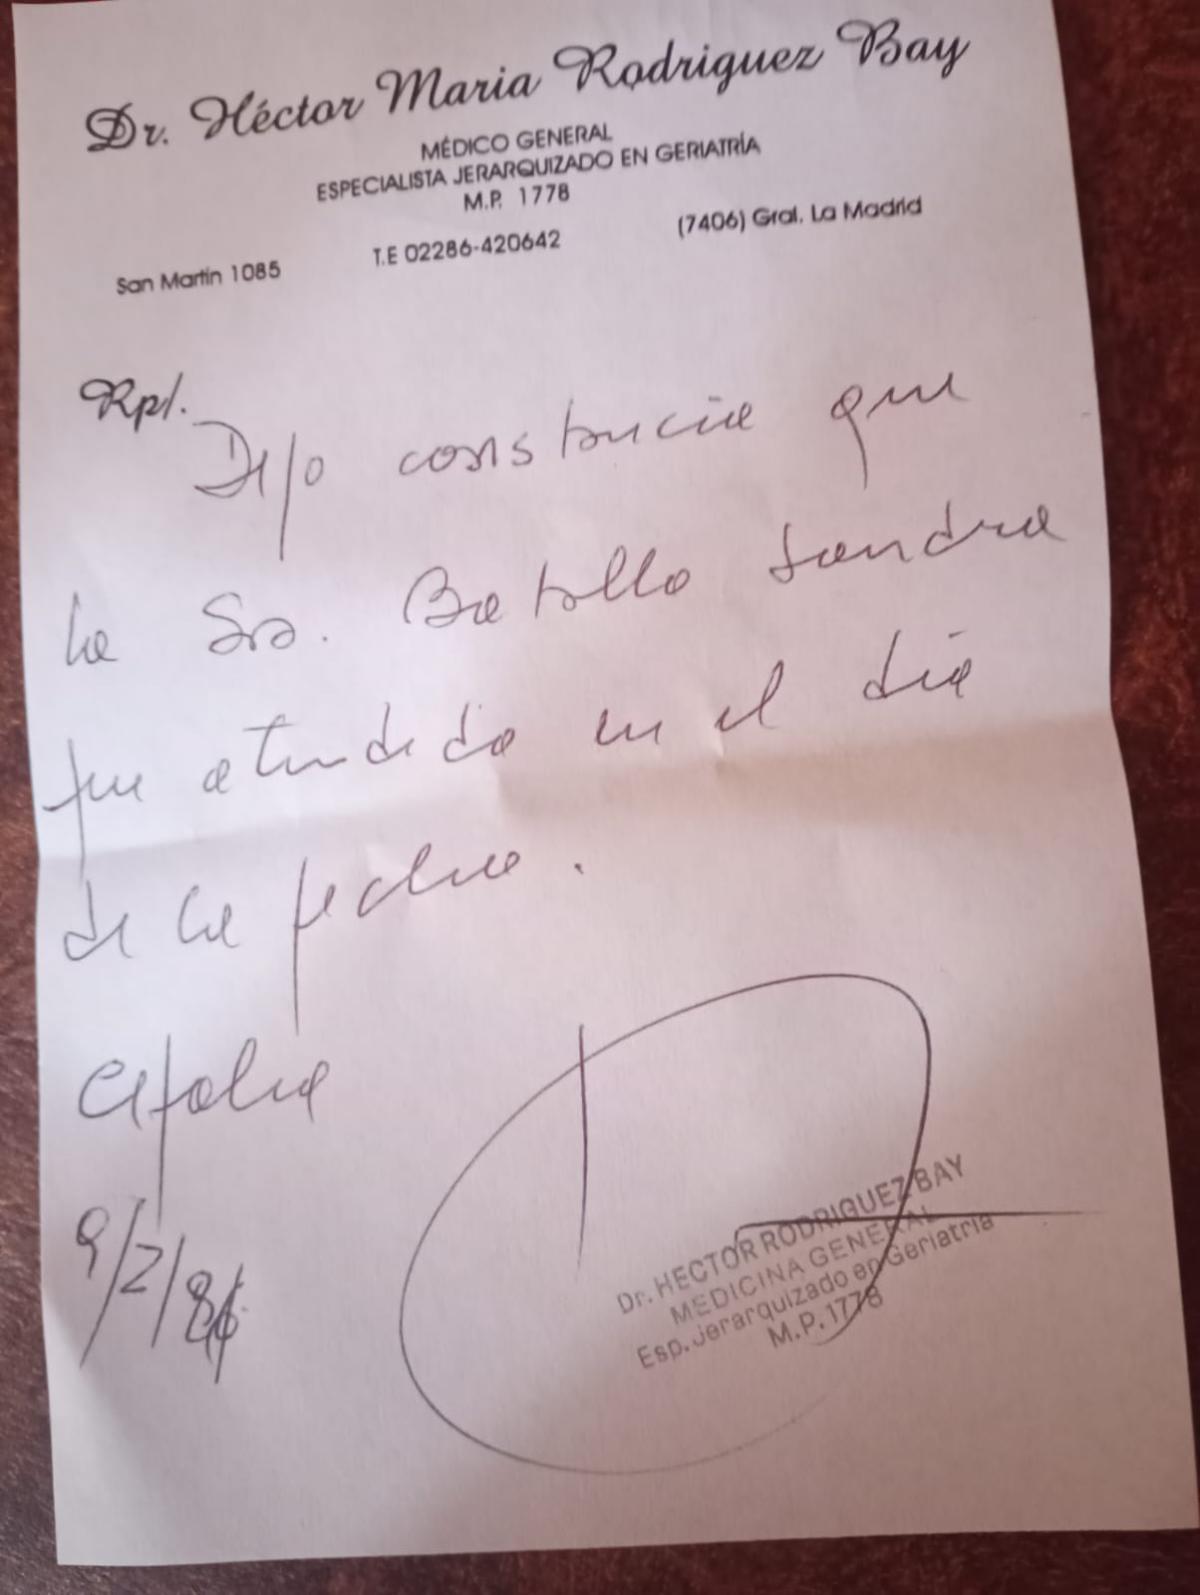 Dr. Héctor Maria Rodriguez Bay
MÉDICO GENERAL
ESPECIALISTA JERARQUIZADO EN GERIATRÍA
M.P. 1778
San Martín 1085 T.E 02286-420642 (7406) Gral. La Madrid
Rp/.
Dejo constancia que
la Sra. Batallo Sandra
fue atendida en el día
de la fecha.
Cefalea
9/2/
Dr. HECTOR RODRIGUEZ BAY
MEDICINA GENERAL
Esp. Jerarquizado en Geriatria
M.P. 1778